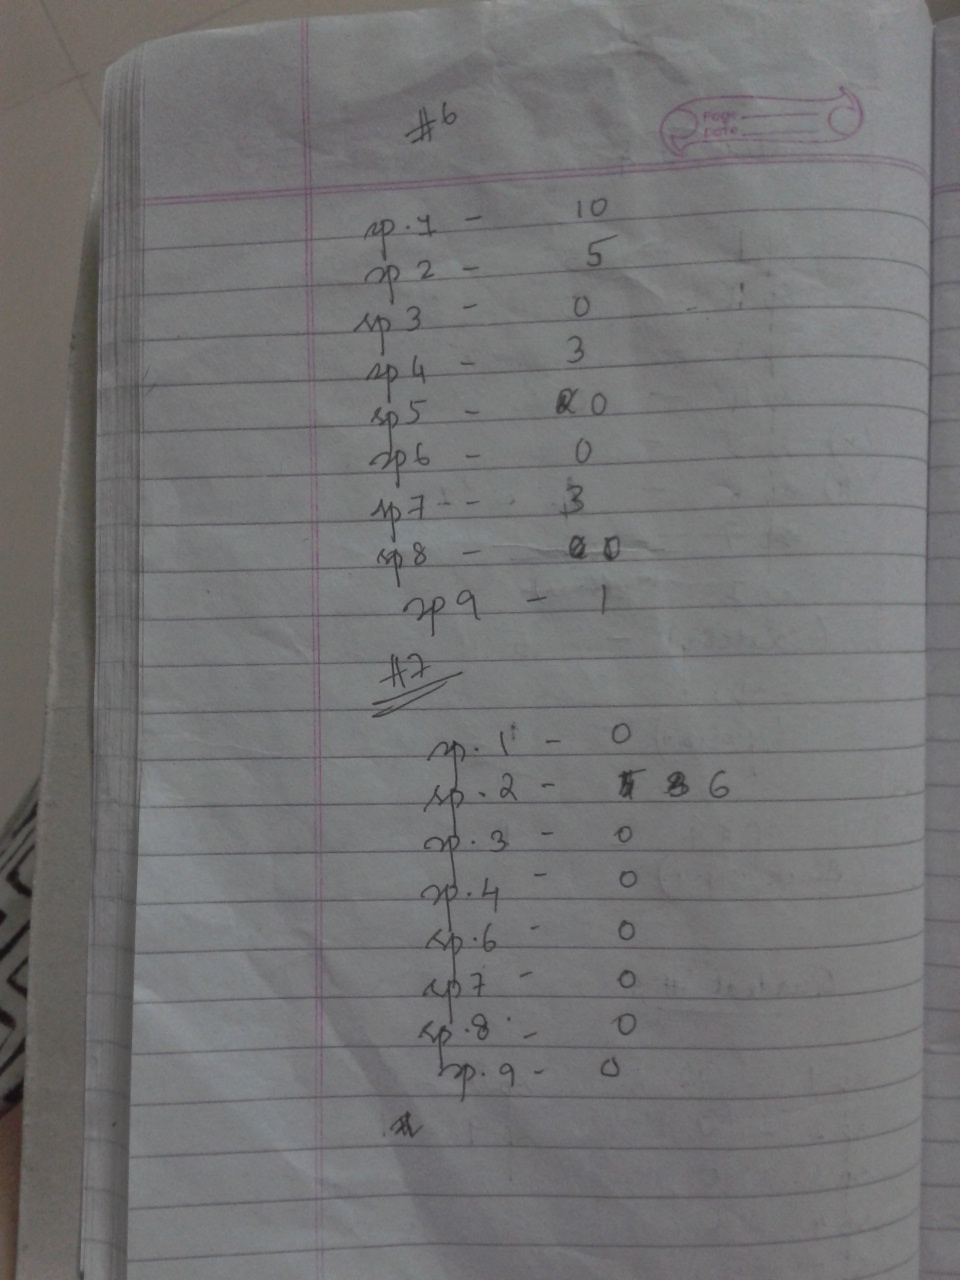 #6
Page
Date
sp.1 - 10
sp 2 - 5
sp 3 - 0
sp 4 - 3
sp 5 - 0
sp 6 - 0
sp 7 - 3
sp 8 - 0
sp 9 - 1
#7
sp. 1 - 0
sp. 2 - 6
sp. 3 - 0
sp. 4 - 0
sp. 6 - 0
sp 7 - 0
sp. 8 - 0
sp. 9 - 0
#